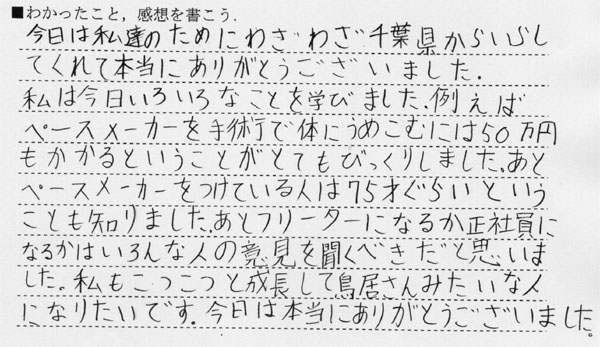 ■わかったこと，感想を書こう．
今日は私達のためにわざわざ千葉県からいらし
てくれて本当にありがとうございました.
私は今日いろいろなことを学びました、例えば
ペースメーカーを手術で体にうめこむには50万円
もかかるということがとてもびっくりしました。あと
ペースメーカーをつけている人は75才ぐらいという
ことも知りました。あとフリーターになるか正社員に
なるかはいろんな人の意見を聞くべきだと思いま
した。私もこつこつと成長して鳥居さんみたいな人
になりたいです.今日は本当にありがとうございました。